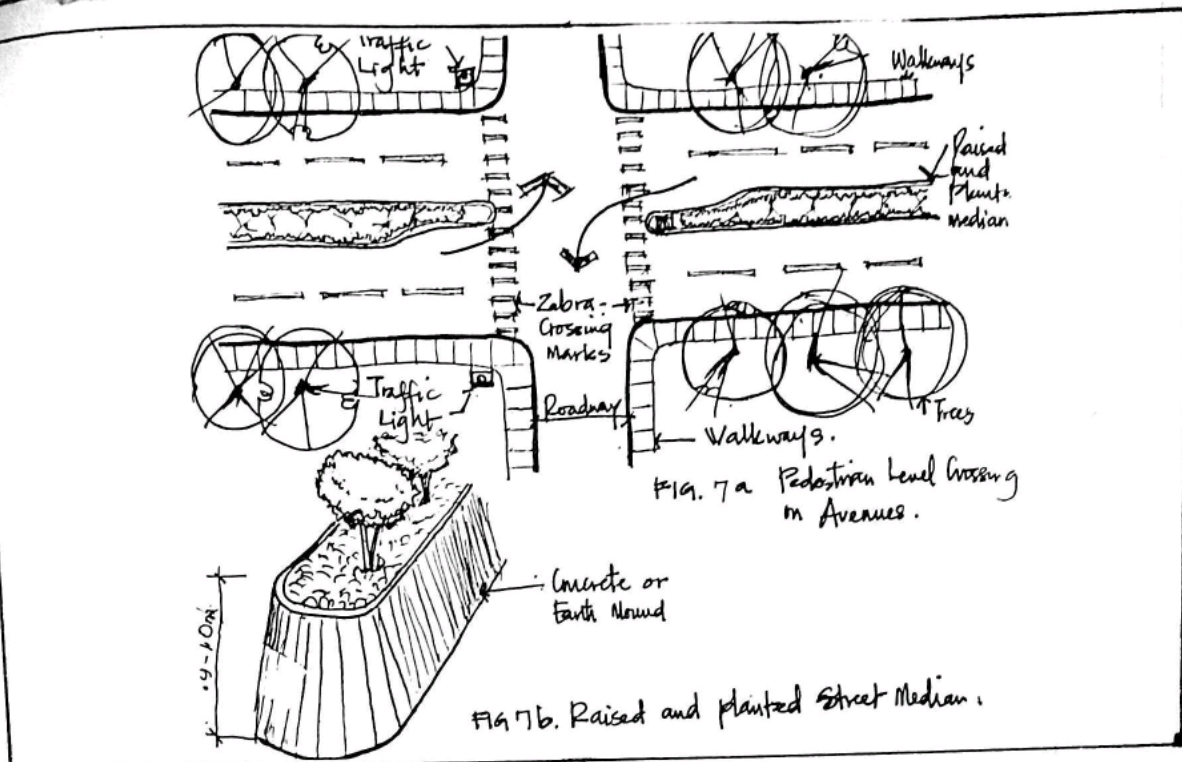 Traffic
Light
Walkways
Raised
and
Plant.
median
Zabra
Crossing
Marks
Traffic
Light
Roadway
Walkways.
Trees
FIG. 7a Pedestrian Level Crossing
on Avenues.
Concrete or
Earth Mound
.9-1.0m
FIG 7b. Raised and planted Street Median.